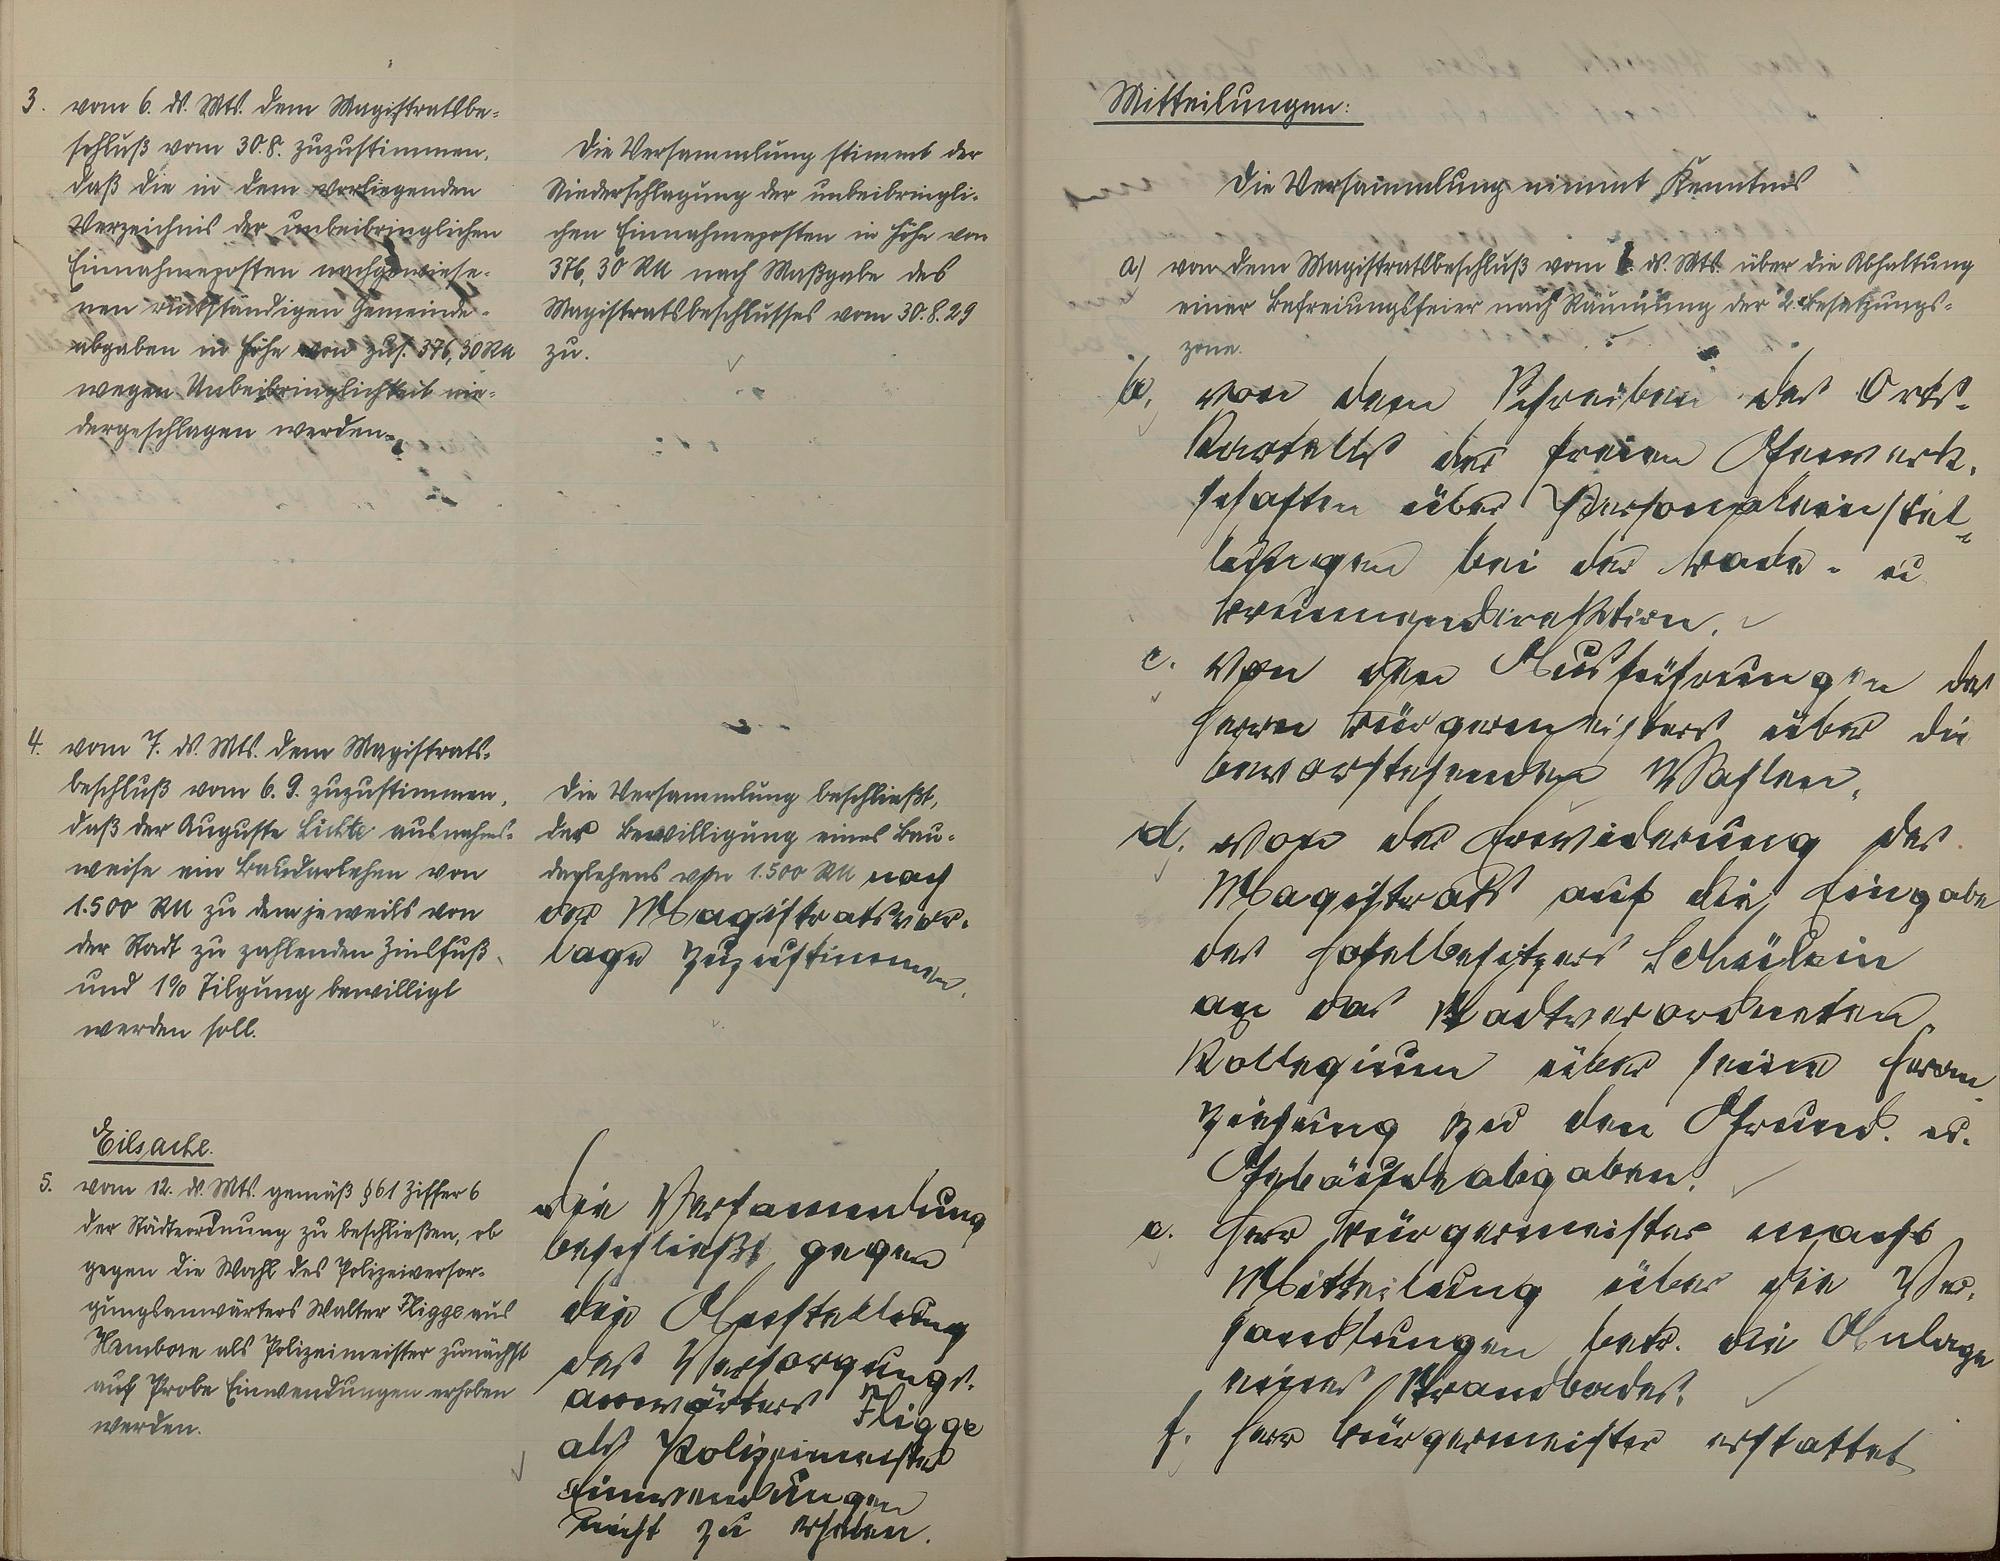 3. vom 6. ds. Mts. dem Magistratsbe-
schluß vom 30.8. zuzustimmen,
daß die in dem vorliegenden
Verzeichnis der unbeibringlichen
Einnahmeposten nachgewiese-
nen rückständigen Gemeinde-
abgaben in Höhe von zus. 376,30 RM
wegen Unbeibringlichkeit nie-
dergeschlagen werden.
Die Versammlung stimmt der
Niederschlagung der unbeibringli-
chen Einnahmeposten in Höhe von
376,30 RM nach Maßgabe des
Magistratsbeschlusses vom 30.8.29
zu.
4. vom 7. ds. Mts. dem Magistrats-
beschluß vom 6.9. zuzustimmen,
daß der Auguste Lichte ausnahms-
weise ein Baudarlehen von
1.500 RM zu dem jeweils von
der Stadt zu zahlenden Zinsfuß
und 1% Tilgung bewilligt
werden soll.
Die Versammlung beschließt,
der Bewilligung eines Bau-
darlehens von 1.500 RM nach
der Magistratsvor-
lage zuzustimmen.
Eilsache.
5. vom 12. ds. Mts. gemäß § 61 Ziffer 6
der Städteordnung zu beschließen, ob
gegen die Wahl des Polizeiversor-
gungsanwärters Walter Fligge aus
Hamborn als Polizeimeister zunächst
auf Probe Einwendungen erhoben
werden.
Die Versammlung
beschließt gegen
die Anstellung
des Versorgungs-
anwärters Fligge
als Polizeimeister
Einwendungen
nicht zu erheben.
Mitteilungen:
Die Versammlung nimmt Kenntnis
a) von dem Magistratsbeschluß vom 6. ds. Mts. über die Abhaltung
einer Befreiungsfeier nach Räumung der 2. Besatzungs-
zone.
b, von dem Schreiben des Orts-
Kartells der freien Gewerk-
schaften über Personaleinstel-
lungen bei der Bade- u
Brunnendirektion.
c. von den Ausführungen des
Herrn Bürgermeisters über die
bevorstehenden Wahlen.
d. von der Erwiderung des
Magistrats auf die Eingabe
des Hotelbesitzers Schäulein
an das Stadtverordneten-
Kollegium über seine Heran-
ziehung zu den Grund- u.
Gebäudeabgaben.
e. Herr Bürgermeister macht
Mitteilung über die Ver-
handlungen betr. die Anlage
eines Strandbades.
f. Herr Bürgermeister erstattet